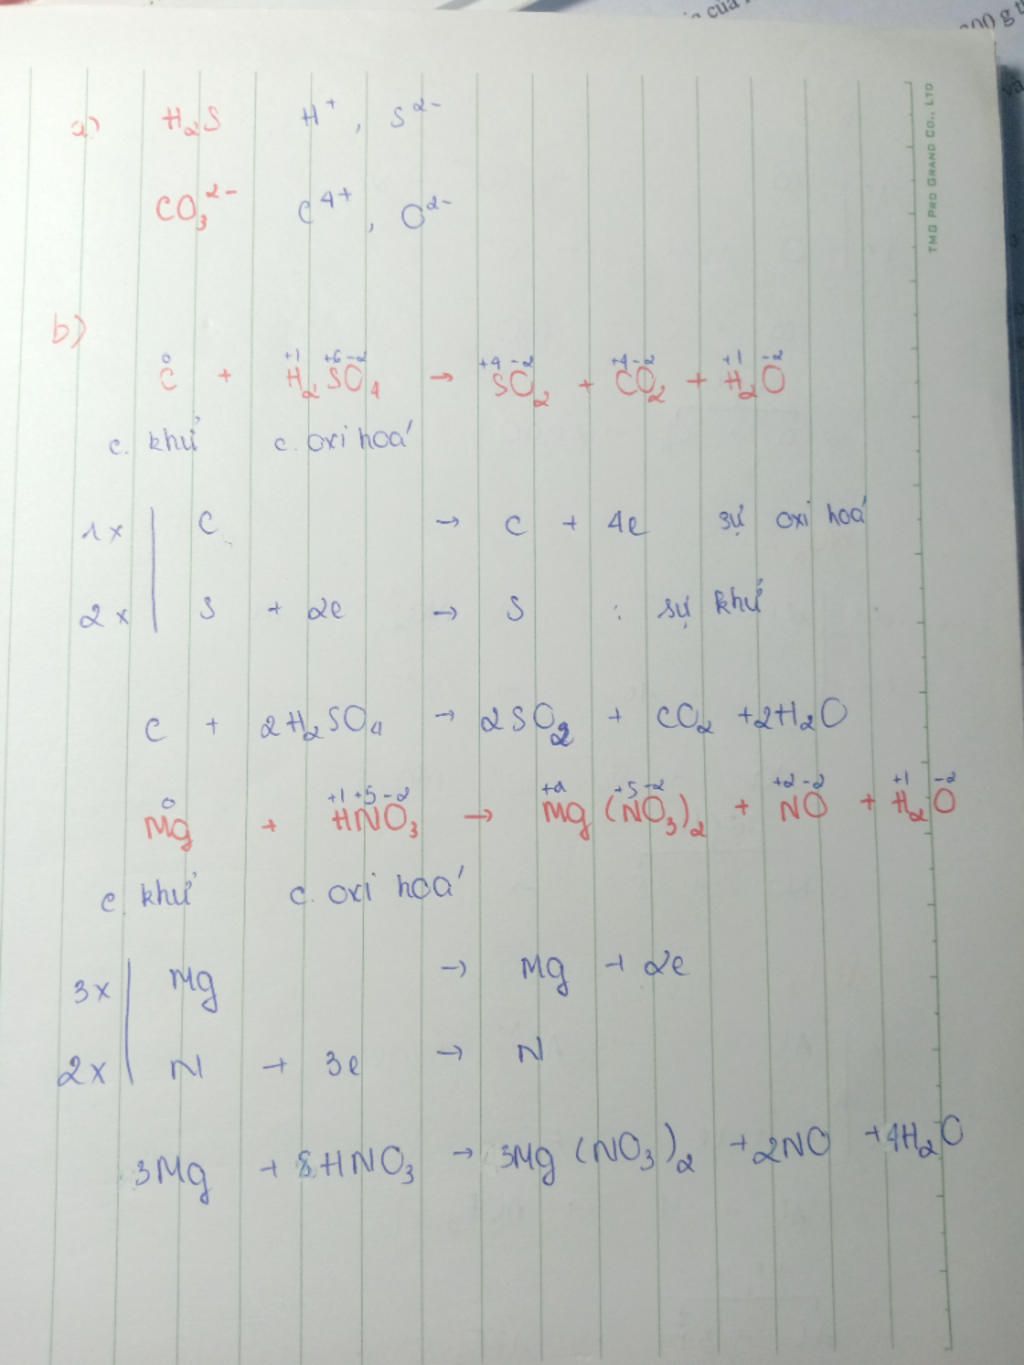 của
200 g
TMG PRO GRAND CO., LTD
a) H₂S H⁺, S²⁻
CO₃²⁻ C⁴⁺, O²⁻
b)
0 +1 +6 -2 +4 -2 +4 -2 +1 -2
C + H₂SO₄ → SO₂ + CO₂ + H₂O
c. khử c. oxi hoá
1x | C → C + 4e sự oxi hoá
2x | S + 2e → S : sự khử
C + 2H₂SO₄ → 2SO₂ + CO₂ + 2H₂O
0 +1 +5 -2 +2 +5 -2 +2 -2 +1 -2
Mg + HNO₃ → Mg(NO₃)₂ + NO + H₂O
c. khử c. oxi hoá
3x | Mg → Mg + 2e
2x | N + 3e → N
3Mg + 8HNO₃ → 3Mg(NO₃)₂ + 2NO + 4H₂O